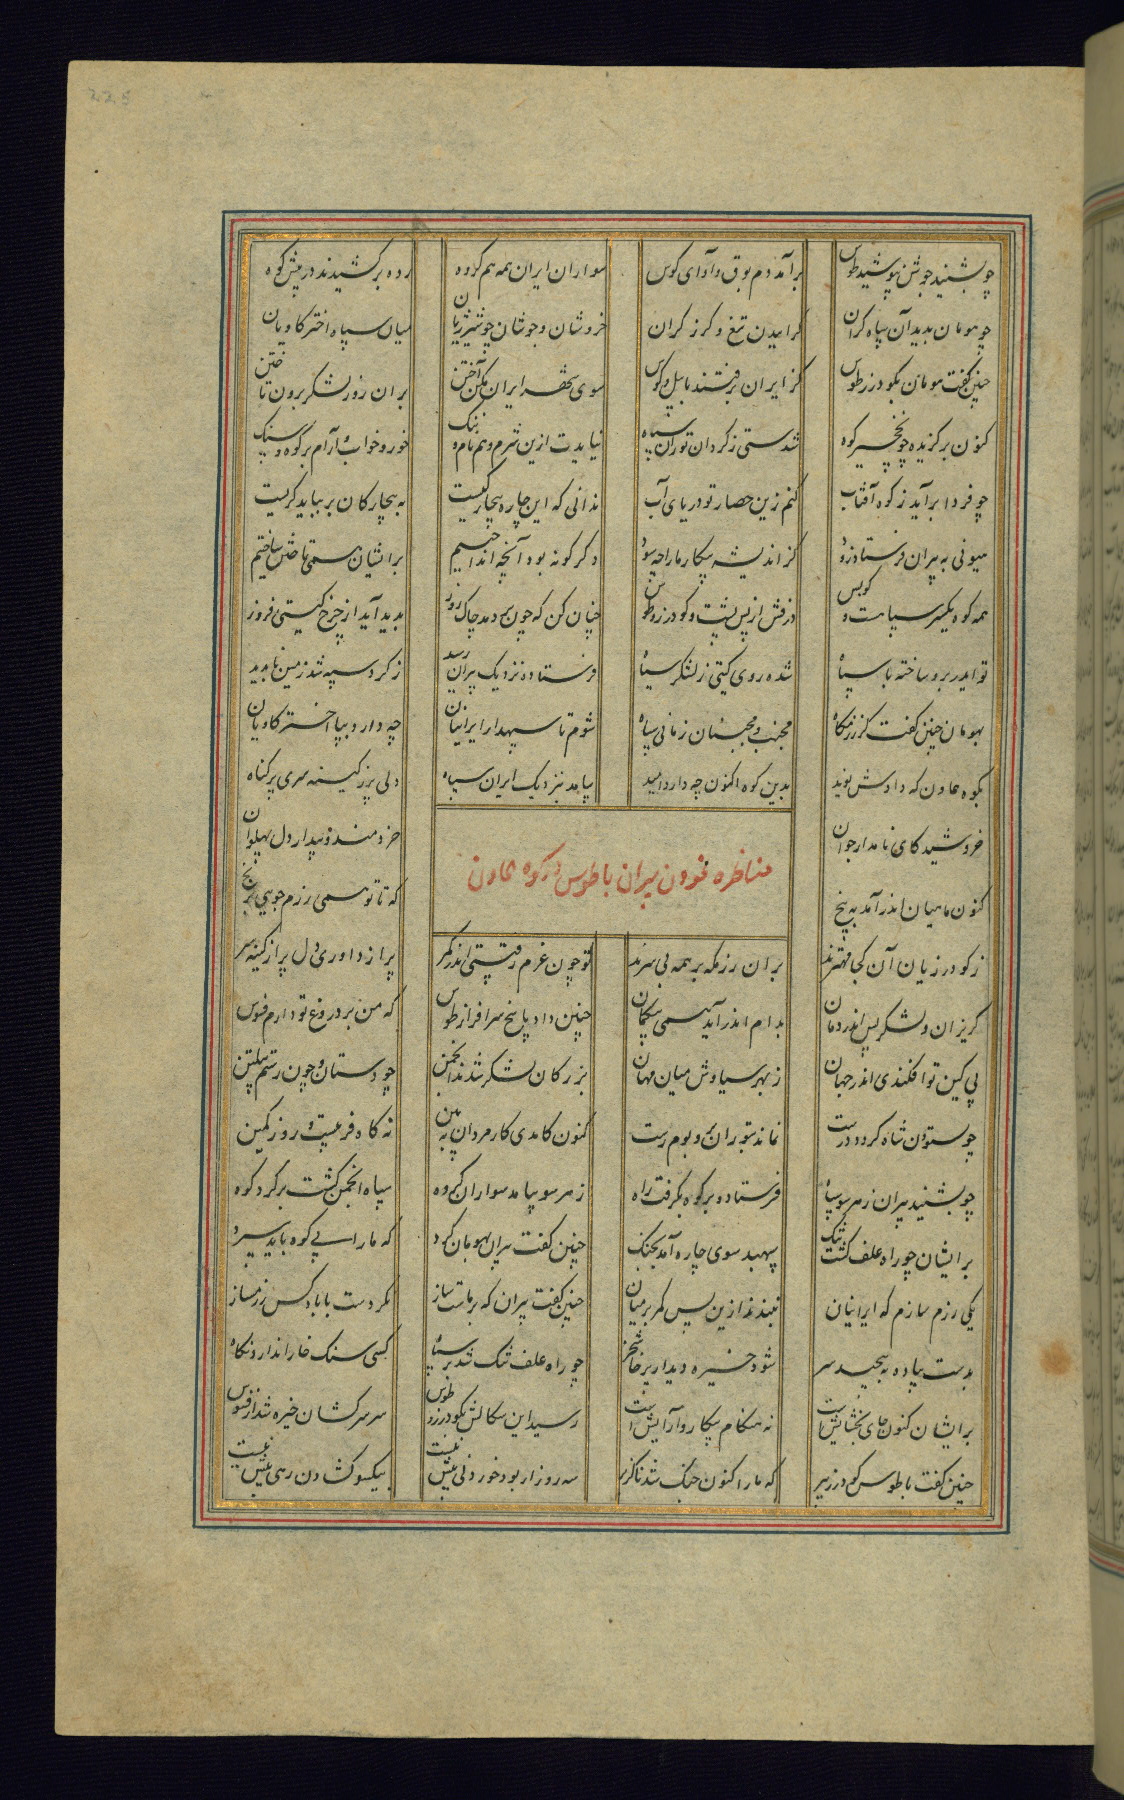 چو بشنید جوشن بپوشید طوس برآمد دم بوق و آوای کوس سواران ایران همه هم گروه رده برکشیدند در پیش کوه
چو هومان بدید آن سپاه گران گراییدن تیغ و گرز گران خروشان و جوشان چو شیر ژیان میان سپاه اختر کاویان
چنین گفت هومان بگودرز و طوس کز ایران برفتند با پیل و کوس سوی شهر ایران بکین آختن بران روز لشکر برون تاختن
کنون برگزیده چو نخچیر کوه شدستی ز گردان توران سپاه نیایدت ازین شرم وهم نام و ننگ خور و خواب و آرام بر کوه و سنگ
چو فردا برآید ز کوه آفتاب کنم زین حصار تو دریای آب ندانی که این چاره بیچارگیست به بیچارگان بر بباید گریست
هیونی به پیران فرستاد زود کز اندیشه پیکار ما را چه سود دگر گونه بود آنچه انداختیم برایشان همی تاختن ساختیم
همه کوه یکسر سپاهست و کوس درفش از پس پشت و گودرز و طوس چنان کن که چون بر دمد چاک روز پدید آید از چرخ گیتی فروز
تو ایدر برو ساخته با سپاه شده روی گیتی ز لشکر سیاه فرستاده نزدیک پیران رسید ز گرد سپه شد زمین ناپدید
بهومان چنین گفت کز رزمگاه مجنب و مجنبان زمانی سپاه شوم تا سپهدار ایرانیان چه دارد بپا اختر کاویان
بکوه هماون که دادش نوید بدین کوه اکنون چه دارد امید بیامد بنزدیک ایران سپاه دلی پر ز کینه سری پر گناه
خروشید کای نامدار جوان خردمند و بیدار دل پهلوان
مناظره نمودن پیران با طوس در کوه هماون
کنون ماهیان اندر آمد به پنج که تا تو همی رزم جویی برنج
ز گودرزیان آن کجا مهترند بران رزمگه بر همه بی سرند تو چون غرم رفتستی اندر کمر پر از داوری دل پر از کینه سر
گریزان و لشکر پس اندر دمان بدام اندر آید همی بیگمان چنین داد پاسخ سرافراز طوس که من بر دروغ تو دارم فسوس
پی کین تو افکندی اندر جهان ز بهر سیاوش میان مهان بزرگان لشکر شدند انجمن چو دستان و چون رستم پیلتن
چو ستوان شاه گردد درست نماند بتوران بر و بوم رست کنون کامدی کار مردان ببین نه گاه فریبست و روز کمین
چو بشنید پیران ز هر سو سپاه فرستاد و بر کوه بگرفت راه ز هر سو بیامد سواران گروه سپاه انجمن گشت بر گرد کوه
برایشان چو راه علف گشت تنگ سپهبد سوی چاره آمد بجنگ چنین گفت پیران بهومان گرد که ما را پی کوه باید سپرد
یکی رزم سازم که ایرانیان نبندند ازین پس کمر بر میان چنین گفت پیران که بر ماست ساز نکردست با باد کس رزم ساز
بدست پیاده به پیچید سر شود خیره دیدار پرخاشخر چو راه علف تنگ شد بر سپاه کسی سنگ خارا ندارد نگاه
برایشان کنون جای بخشایش است نه هنگام پیکار و آرایش است رسید این سگالش بگودرز و طوس سر سرکشان خیره شد از فسوس
چنین گفت با طوس گودرز پیر که ما را کنون جنگ شد ناگزیر سه روز ار بود خوردنی بیش نیست بیکسو گشادن رهی پیش نیست